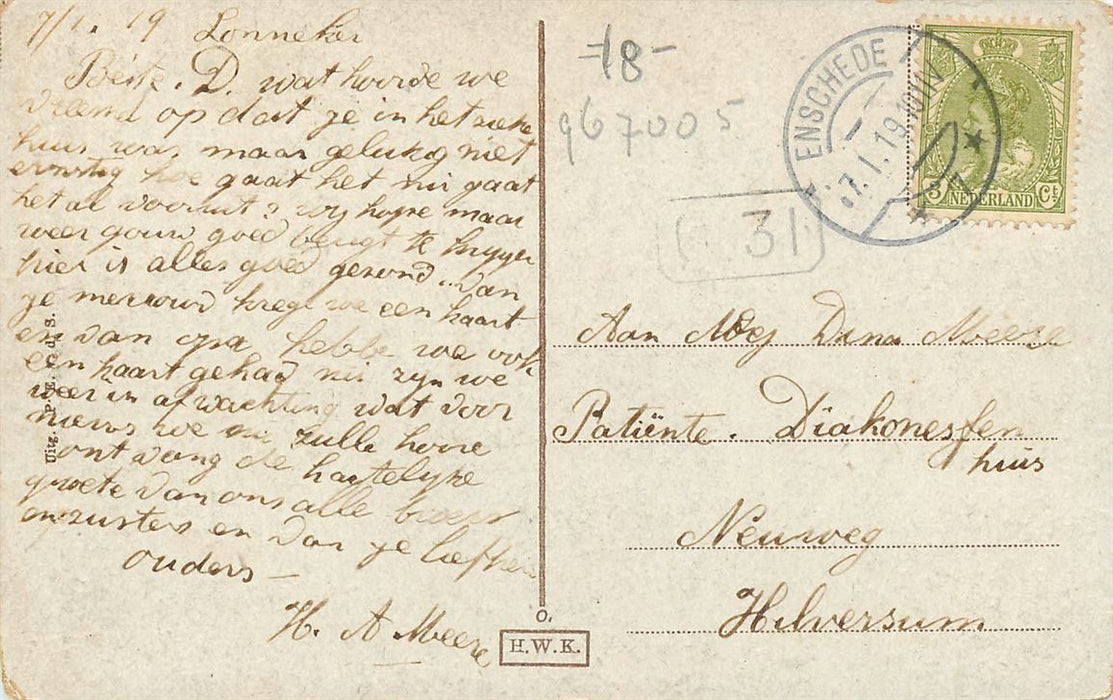 7/1. 19 Lonneker
Beste. D. wat hoorde we
vreemd op dat je in het zieke
huis was maar gelukig niet
ernstig hoe gaat het nu gaat
het al vooruit? wij hope maar
weer gouw goed te krijgen
hier is alles goed gezond. van
je mevrouw krege we een kaart
en van opa hebbe we ook
een kaart gehad nu zijn we
weer in afwachting wat voor
nieuws we nu zulle hoore
ontvang de hartelijke
groete van ons alle broers
en zusters en van je
ouders —
H. A Meere
Uitg.
-18-
967005
31
ENSCHEDE
7.1.19.
3 NEDERLAND CT
Aan Mej Dina Meere
Patiënte. Diakonessen
huis
Neuweg
Hilversum
O.
H.W.K.